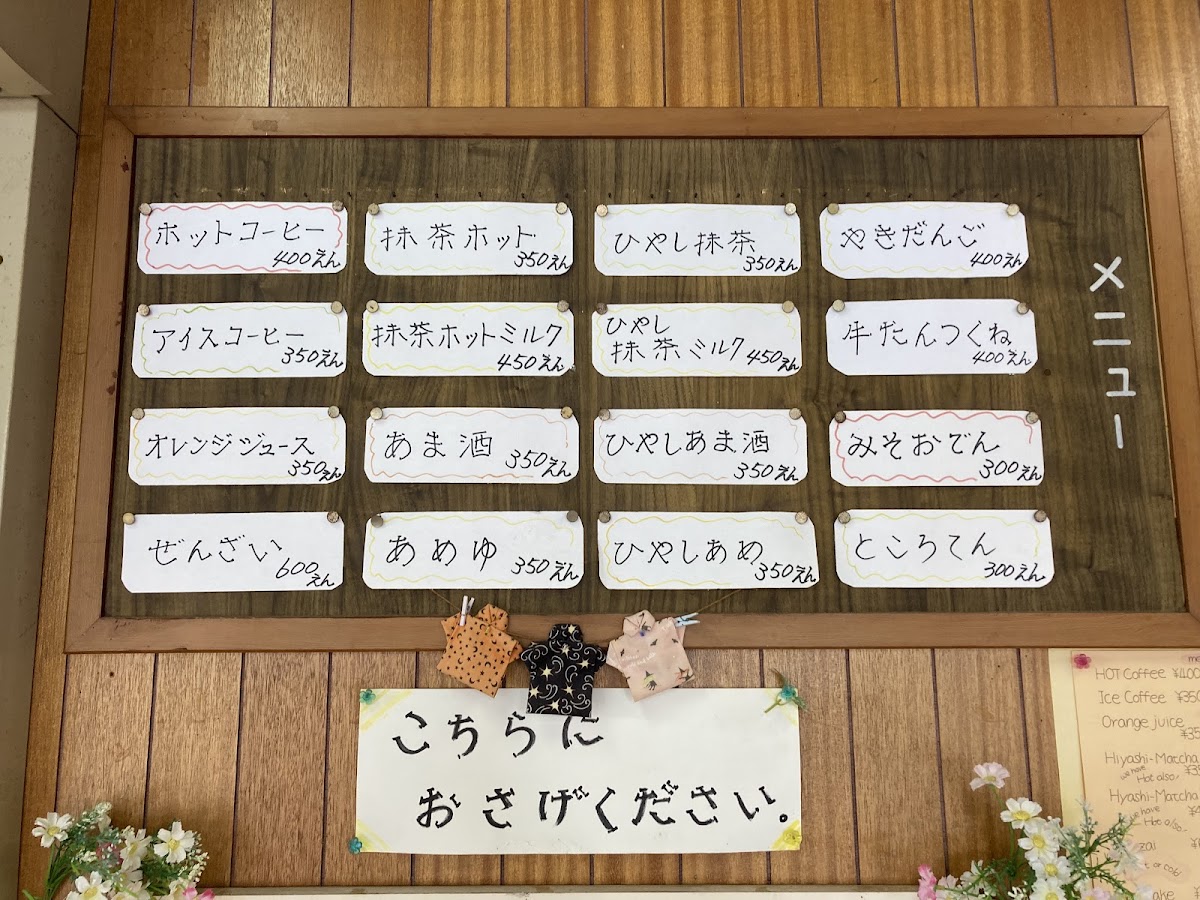 メニュー
ホットコーヒー
400えん
抹茶ホット
350えん
ひやし抹茶
350えん
やきだんご
400えん
アイスコーヒー
350えん
抹茶ホットミルク
450えん
ひやし
抹茶ミルク 450えん
牛たんつくね
400えん
オレンジジュース
350えん
あま酒 350えん
ひやしあま酒
350えん
みそおでん
300えん
ぜんざい
600えん
あめゆ 350えん
ひやしあめ
350えん
ところてん
300えん
こちらに
おさげください。
HOT Coffee ¥400
Ice Coffee ¥350
Orange juice
Hiyashi-Matcha
we have
Hot also,
Hyashi-Matcha
we have
Hot also.